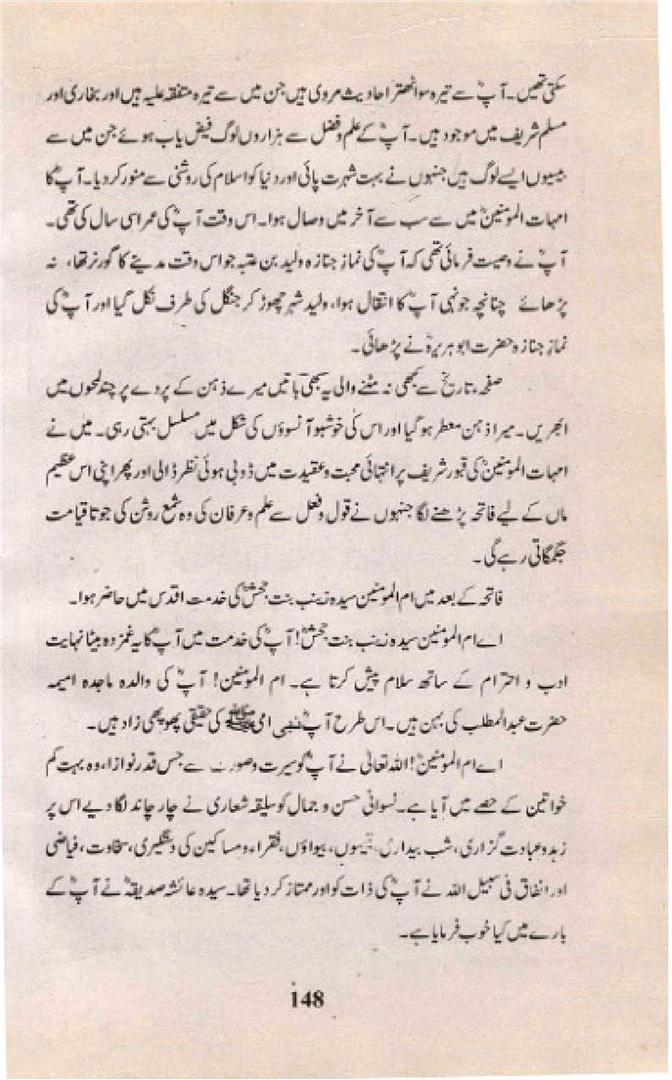 سکتی تھیں۔ آپؓ سے تیرہ سو اٹھتر احادیث مروی ہیں جن میں سے تیرہ متفقہ علیہ ہیں اور بخاری اور
مسلم شریف میں موجود ہیں۔ آپؓ کے علم و فضل سے ہزاروں لوگ فیض یاب ہوئے جن میں سے
بیسیوں ایسے لوگ ہیں جنہوں نے بہت شہرت پائی اور دنیا کو اسلام کی روشنی سے منور کر دیا۔ آپؓ کا
امہات المومنینؓ میں سے سب سے آخر میں وصال ہوا۔ اس وقت آپؓ کی عمر اسی سال کی تھی۔
آپؓ نے وصیت فرمائی تھی کہ آپؓ کی نمازِ جنازہ ولید بن عتبہ جو اس وقت مدینے کا گورنر تھا، نہ
پڑھائے چنانچہ جونہی آپؓ کا انتقال ہوا، ولید شہر چھوڑ کر جنگل کی طرف نکل گیا اور آپؓ کی
نمازِ جنازہ حضرت ابو ہریرہؓ نے پڑھائی۔
صفحہ تاریخ سے کبھی نہ مٹنے والی یہ سبھی باتیں میرے ذہن کے پردے پر چند لمحوں میں
ابھریں۔ میرا ذہن معطر ہو گیا اور اس کی خوشبو آنسوؤں کی شکل میں مسلسل بہتی رہی۔ میں نے
امہات المومنینؓ کی قبور شریف پر انتہائی محبت و عقیدت میں ڈوبی ہوئی نظر ڈالی اور پھر اپنی اس عظیم
ماں کے لیے فاتحہ پڑھنے لگا جنہوں نے قول و فعل سے علم و عرفان کی وہ شمع روشن کی جو تا قیامت
جگمگاتی رہے گی۔
فاتحہ کے بعد میں ام المومنین سیدہ زینب بنت جحشؓ کی خدمت اقدس میں حاضر ہوا۔
اے ام المومنین سیدہ زینب بنت جحشؓ! آپؓ کی خدمت میں آپؓ کا یہ غمزدہ بیٹا نہایت
ادب و احترام کے ساتھ سلام پیش کرتا ہے۔ ام المومنین! آپؓ کی والدہ ماجدہ امیمہ
حضرت عبدالمطلب کی بہن ہیں۔ اس طرح آپؓ نبی امی ﷺ کی حقیقی پھوپھی زاد ہیں۔
اے ام المومنینؓ! اللہ تعالیٰ نے آپؓ کو سیرت و صورت سے جس قدر نوازا، وہ بہت کم
خواتین کے حصے میں آیا ہے۔ نسوانی حسن و جمال کو سلیقہ شعاری نے چار چاند لگا دیے اس پر
زہد و عبادت گزاری، شب بیداری، یتیموں، بیواؤں، فقراء و مساکین کی دستگیری، سخاوت، فیاضی
اور انفاق فی سبیل اللہ نے آپؓ کی ذات کو اور ممتاز کر دیا تھا۔ سیدہ عائشہ صدیقہؓ نے آپؓ کے
بارے میں کیا خوب فرمایا ہے۔
148